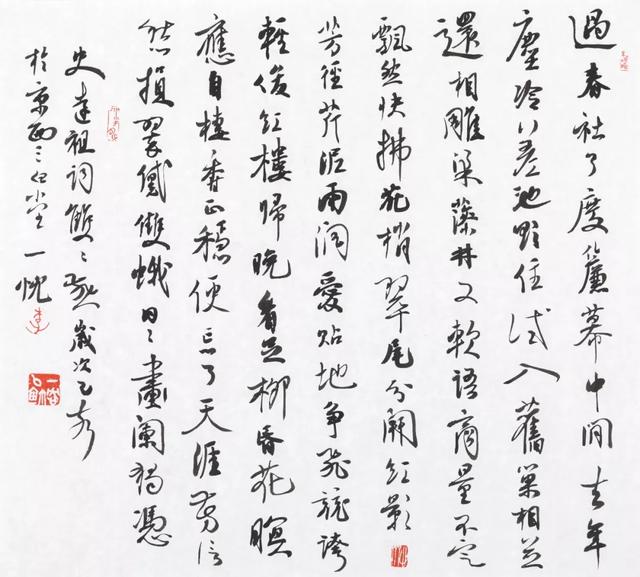 過春社了度簾幕中間去年
塵冷差池欲住試入舊巢相並
還相雕梁藻井又軟語商量不定
飄然快拂花梢翠尾分開紅影
芳徑芹泥雨潤愛貼地爭飛競誇
輕俊紅樓歸晚看足柳昏花暝
應自棲香正穩便忘了天涯芳信
愁損翠黛雙蛾日〻畫闌獨憑
史達祖詞雙〻燕歲次乙
於京西三堂一忱